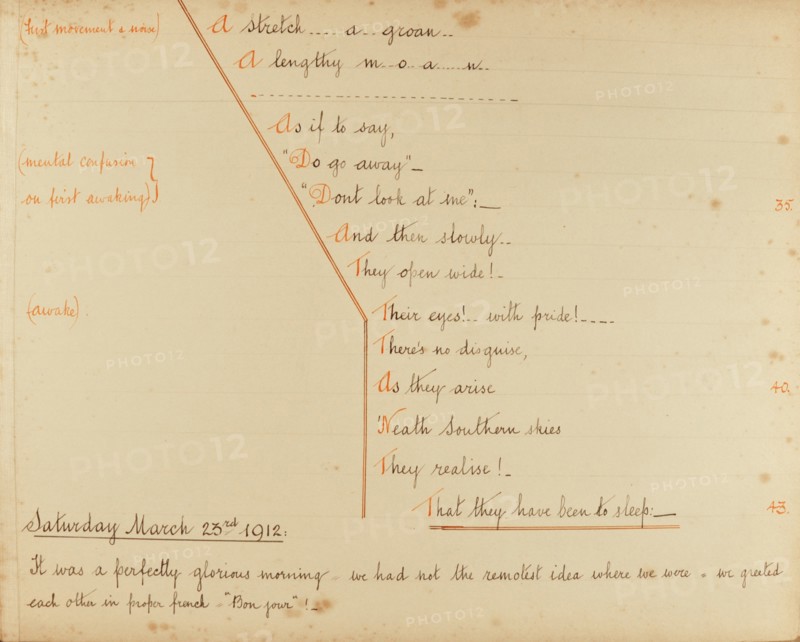 (first movement & noise) A stretch.... a.. groan..
A lengthy m..o..a.....n..
As if to say,
(mental confusion "Do go away"_
on first awaking) "Dont look at me":_ 35.
And then slowly..
They open wide!_
(awake). Their eyes!.. with pride!....
There's no disguise,
As they arise 40.
'Neath Southern skies
They realise!_
That they have been to sleep:_ 43.
Saturday March 23rd 1912:
It was a perfectly glorious morning - we had not the remotest idea where we were - we greeted
each other in proper french - "Bon jour"!_
PHOTO12